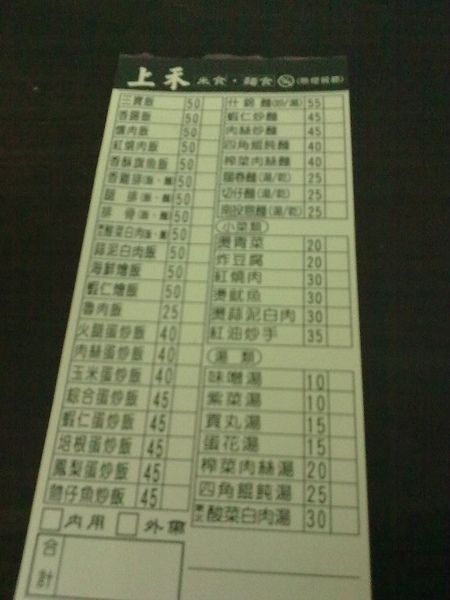 上禾 米食·麵食
三寶飯 50
香腸飯 50
爌肉飯 50
紅燒肉飯 50
香酥旗魚飯 50
香雞排(飯、麵) 50
腿排(飯、麵) 50
排骨(飯、麵) 50
酸菜白肉(飯、麵) 50
蒜泥白肉飯 50
海鮮燴飯 50
蝦仁燴飯 50
魯肉飯 25
火腿蛋炒飯 40
肉絲蛋炒飯 40
玉米蛋炒飯 40
綜合蛋炒飯 45
蝦仁蛋炒飯 45
培根蛋炒飯 45
鳳梨蛋炒飯 45
吻仔魚炒飯 45
內用 外帶
合計
什錦麵(炒/湯) 55
蝦仁炒麵 45
肉絲炒麵 45
四角餛飩麵 40
榨菜肉絲麵 40
陽春麵(湯/乾) 25
切仔麵(湯/乾) 25
南投意麵(湯/乾) 25
小菜類
燙青菜 20
炸豆腐 20
紅燒肉 30
燙魷魚 30
燙蒜泥白肉 30
紅油炒手 35
湯類
味噌湯 10
紫菜湯 10
貢丸湯 15
蛋花湯 15
榨菜肉絲湯 20
四角餛飩湯 25
酸菜白肉湯 30